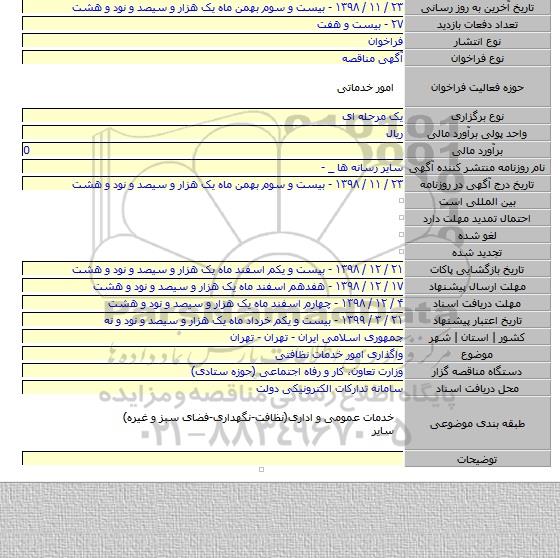 تاریخ آخرین به روز رسانی ۲۳ / ۱۱ / ۱۳۹۸ - بیست و سوم بهمن ماه یک هزار و سیصد و نود و هشت
تعداد دفعات بازدید ۲۷ - بیست و هفت
نوع انتشار فراخوان
نوع فراخوان آگهی مناقصه
حوزه فعالیت فراخوان امور خدماتی
نوع برگزاری یک مرحله ای
واحد پولی برآورد مالی ریال
برآورد مالی 0
نام روزنامه منتشر کننده آگهی سایر رسانه ها _ -
تاریخ درج آگهی در روزنامه ۲۳ / ۱۱ / ۱۳۹۸ - بیست و سوم بهمن ماه یک هزار و سیصد و نود و هشت
بین المللی است
احتمال تمدید مهلت دارد
لغو شده
تجدید شده
تاریخ بازگشایی پاکات ۲۱ / ۱۲ / ۱۳۹۸ - بیست و یکم اسفند ماه یک هزار و سیصد و نود و هشت
مهلت ارسال پیشنهاد ۱۷ / ۱۲ / ۱۳۹۸ - هفدهم اسفند ماه یک هزار و سیصد و نود و هشت
مهلت دریافت اسناد ۴ / ۱۲ / ۱۳۹۸ - چهارم اسفند ماه یک هزار و سیصد و نود و هشت
تاریخ اعتبار پیشنهاد ۲۱ / ۳ / ۱۳۹۹ - بیست و یکم خرداد ماه یک هزار و سیصد و نود و نه
کشور | استان | شهر جمهوری اسلامی ایران - تهران - تهران
موضوع واگذاری امور خدمات نظافتی
دستگاه مناقصه گزار وزارت تعاون، کار و رفاه اجتماعی (حوزه ستادی)
محل دریافت اسناد سامانه تدارکات الکترونیکی دولت
طبقه بندی موضوعی خدمات عمومی و اداری(نظافت-نگهداری-فضای سبز و غیره)
سایر
توضیحات
پایگاه اطلاع رسانی مناقصه و مزایده
۰۲۱-۸۸۳۴۹۶۷۰-۵